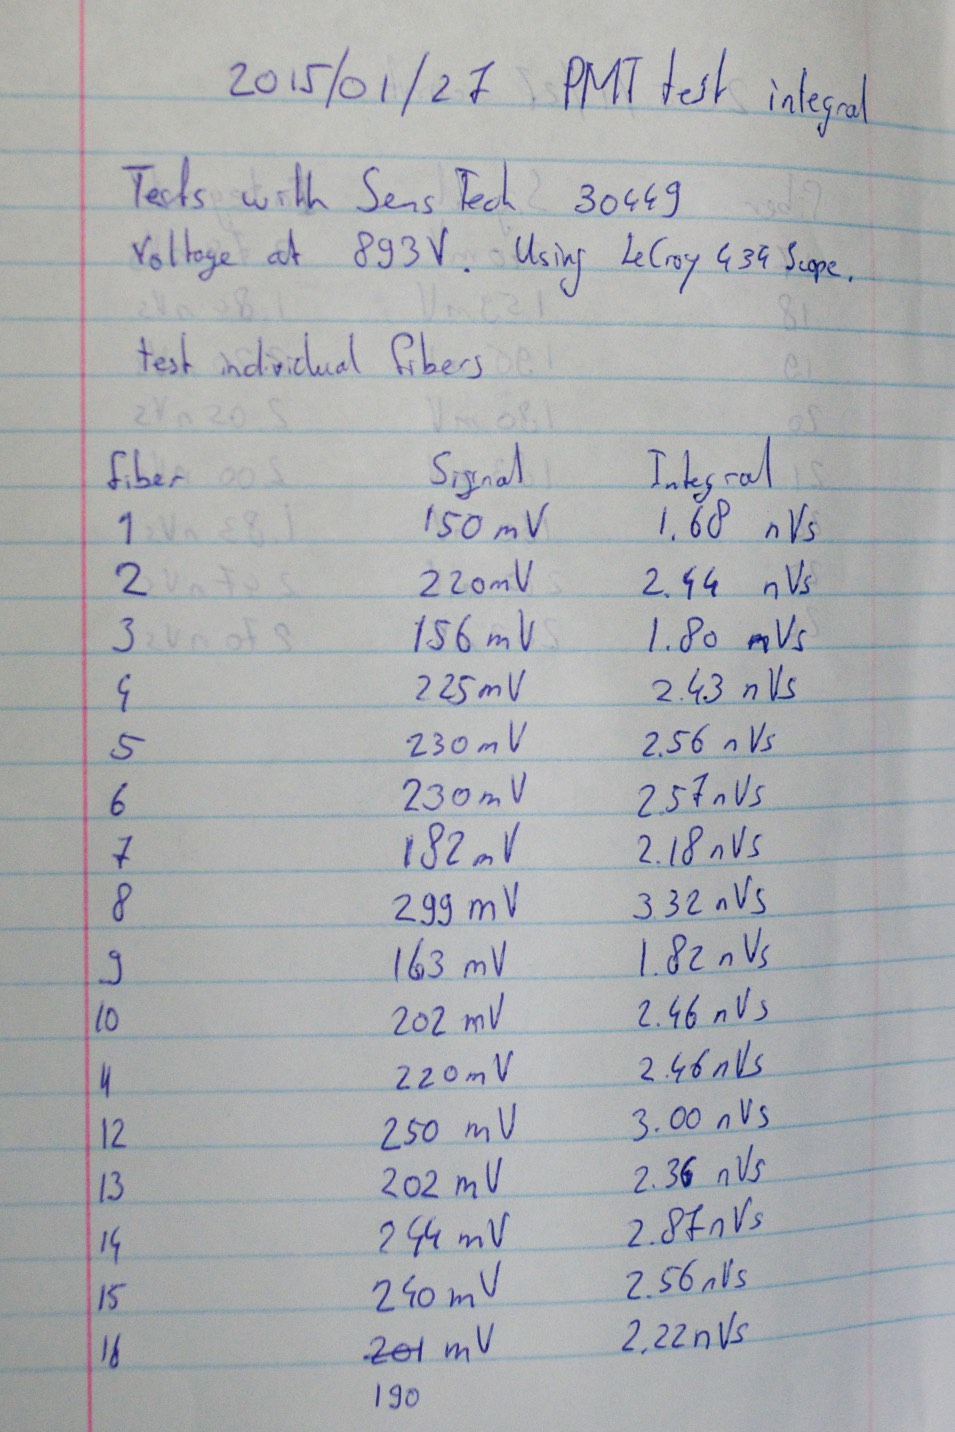 2015/01/27 PMT test integral
Tests with Sens Tech 30449
Voltage at 893V. Using LeCroy 434 Scope.
test individual fibers
fiber Signal Integral
1 150 mV 1.68 nVs
2 220mV 2.44 nVs
3 156 mV 1.80 nVs
4 225mV 2.43 nVs
5 230mV 2.56 nVs
6 230mV 2.57nVs
7 182mV 2.18nVs
8 299 mV 3 32 nVs
9 163 mV 1.82 nVs
10 202 mV 2.46 nVs
11 220mV 2.46nVs
12 250 mV 3.00 nVs
13 202 mV 2.36 nVs
14 244 mV 2.87nVs
15 240 mV 2.56nVs
16 201 mV 2.22nVs
190